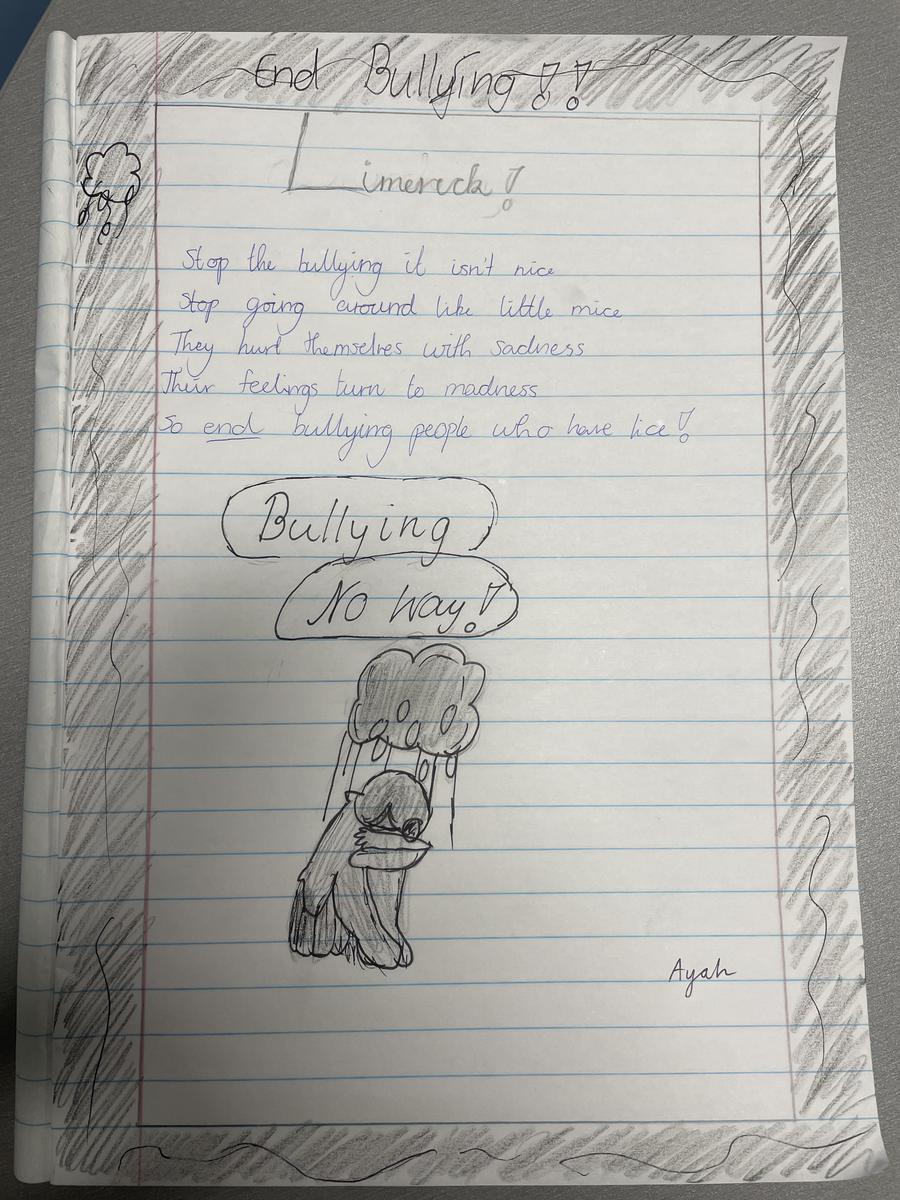 End Bullying!!
Limereck!
Stop the bullying it isn't nice
Stop going around like little mice
They hurt themselves with sadness
Their feelings turn to madness
So end bullying people who have lice!
Bullying
No Way!
Ayah